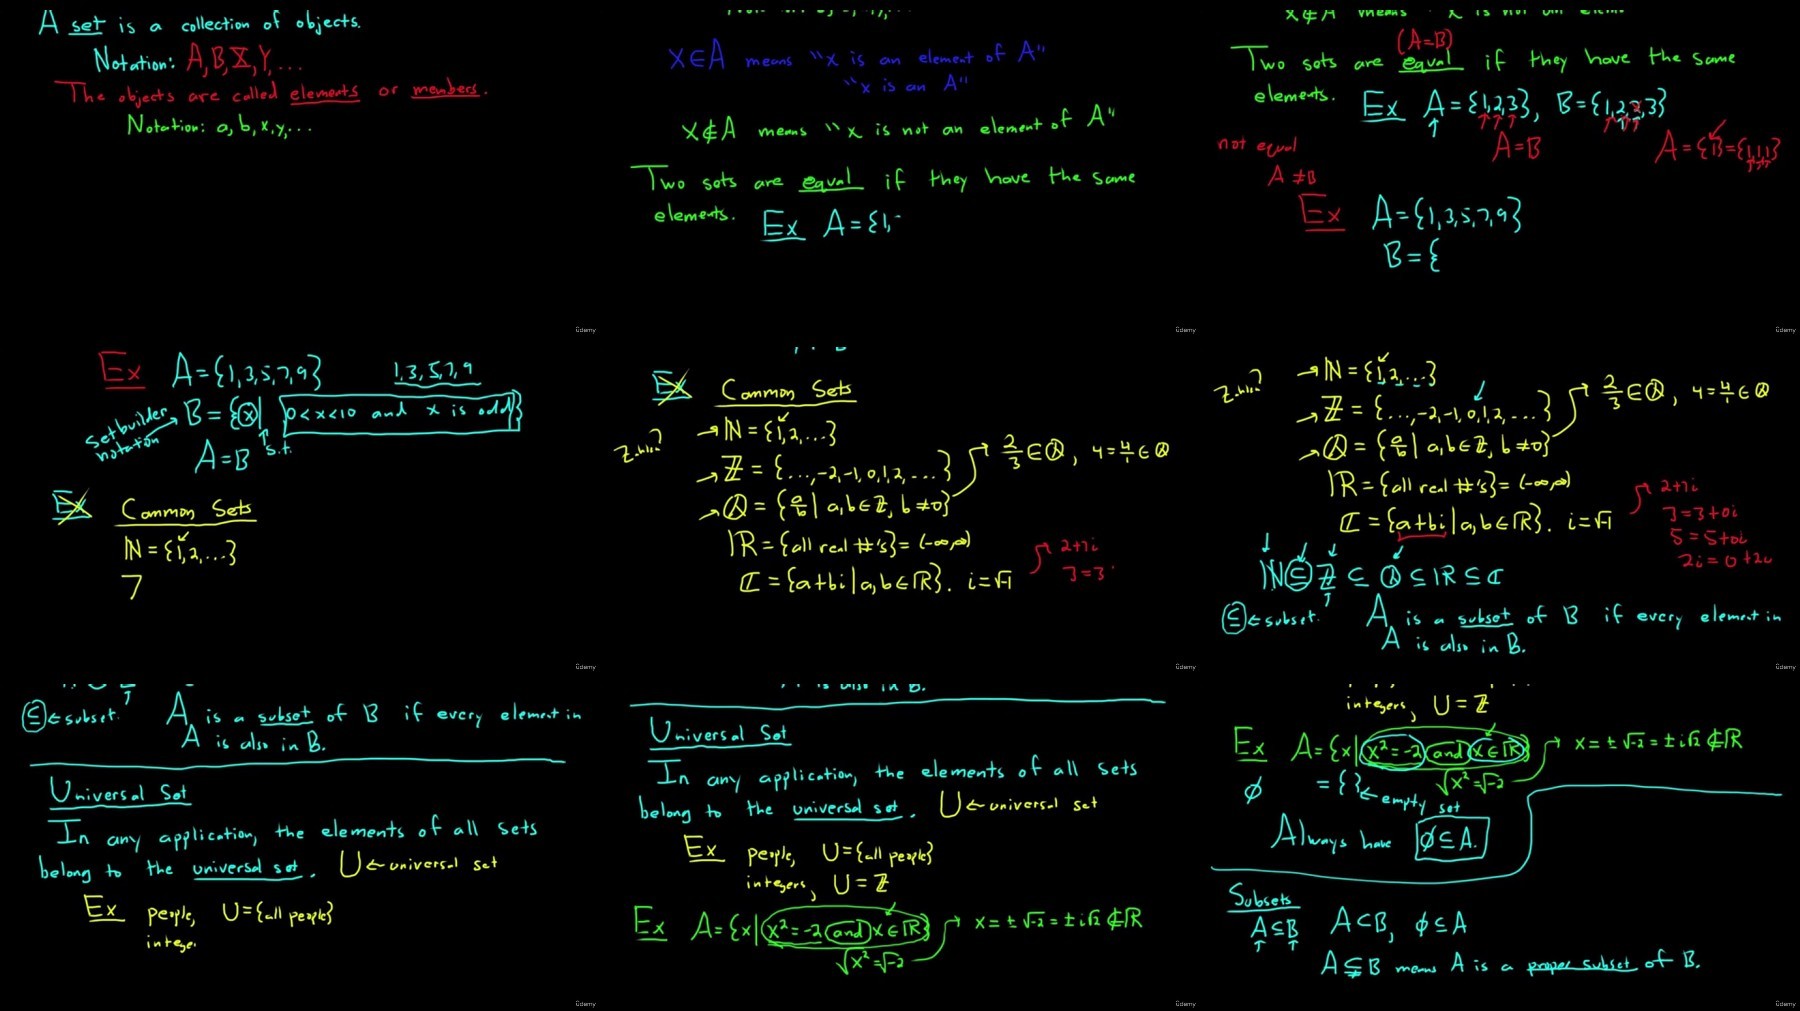 A set is a collection of objects.
Notation: A, B, X, Y, ...
The objects are called elements or members.
Notation: a, b, x, y, ...
x ∈ A means "x is an element of A"
"x is an A"
x ∉ A means "x is not an element of A"
Two sets are equal if they have the same
elements. Ex A = {1,
ûdemy
(A=B)
Two sets are equal if they have the same
elements. Ex A = {1,2,3}, B = {1,2,2,3}
not equal A=B A={1}={1,1,1}
A≠B
Ex A = {1,3,5,7,9}
B = {
ûdemy
ûdemy
Ex A = {1,3,5,7,9} 1,3,5,7,9
set builder notation B = {x| 0<x<10 and x is odd}
A=B s.t.
Ex Common Sets
ℕ = {1,2,...}
ûdemy
Ex Common Sets
ℕ = {1,2,...}
ℤ = {...,-2,-1,0,1,2,...} 2/3 ∈ ℚ, 4=4/1 ∈ ℚ
ℚ = {a/b | a,b∈ℤ, b≠0}
ℝ = {all real #'s} = (-∞,∞) 2+7i
ℂ = {a+bi | a,b∈ℝ}. i=√-1 3=3
ûdemy
ℕ = {1,2,...}
ℤ = {...,-2,-1,0,1,2,...} 2/3 ∈ ℚ, 4=4/1 ∈ ℚ
ℚ = {a/b | a,b∈ℤ, b≠0}
ℝ = {all real #'s} = (-∞,∞) 2+7i
3=3+0i
ℂ = {a+bi | a,b∈ℝ}. i=√-1 5=5+0i
2i=0+2i
ℕ ⊆ ℤ ⊆ ℚ ⊆ ℝ ⊆ ℂ
⊆ ← subset. A is a subset of B if every element in
A is also in B.
ûdemy
⊆ ← subset. A is a subset of B if every element in
A is also in B.
Universal Set
In any application, the elements of all sets
belong to the universal set. U ← universal set
Ex people, U={all people}
intege
ûdemy
A is also in B.
Universal Set
In any application, the elements of all sets
belong to the universal set. U ← universal set
Ex people, U={all people}
integers, U=ℤ
Ex A={x| x²=-2 and x∈ℝ} → x=±√-2=±i√2 ∉ℝ
√x²=√-2
ûdemy
integers, U=ℤ
Ex A={x| x²=-2 and x∈ℝ} → x=±√-2=±i√2 ∉ℝ
√x²=√-2
∅ = { } ← empty set
Always have ∅⊆A.
Subsets
A⊆B A⊂B, ∅⊆A
A⊊B means A is a proper subset of B.
ûdemy